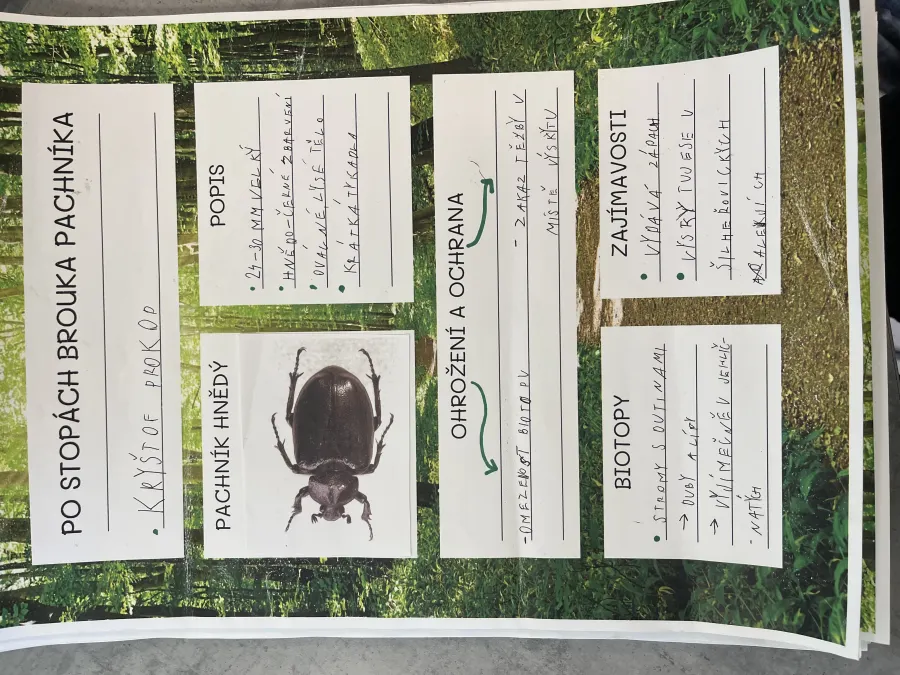 PO STOPÁCH BROUKA PACHNÍKA
• KRYŠTOF PROKOP
PACHNÍK HNĚDÝ
POPIS
• 24-30 MM VELKÝ
• HNĚDO-ČERNÉ ZBARVENÍ
• OVÁLNÉ, LYSÉ TĚLO
• KRÁTKÁ TYKADLA
OHROŽENÍ A OCHRANA
- OMEZENOST BIOTOPU
- ZÁKAZ TĚŽBY V
MÍSTĚ VÝSKYTU
BIOTOPY
• STROMY S DUTINAMI
→ DUBY A LÍPY
→ VÝJIMEČNĚ V JEHLIČ-
NATÝCH
ZAJÍMAVOSTI
• VYDÁVÁ ZÁPACH
• VYSKYTUJE SE V
ŠILHEŘOVICKÝCH
ALEJÍCH